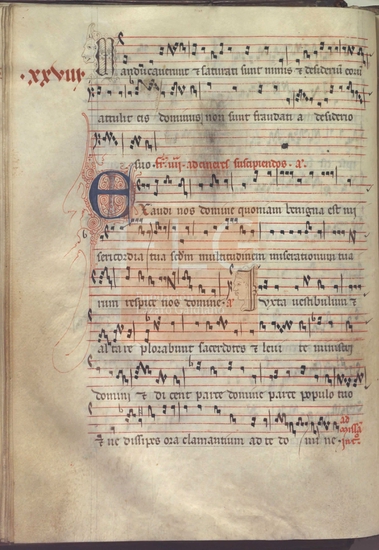 .xxviii.
Manducaverunt & saturati sunt nimis & desiderium eorum
attulit eis dominus non sunt fraudati a desiderio
suo. fr. iiii. ad cineres suscipiendos. a.
Exaudi nos domine quoniam benigna est mi
sericordia tua scdm multitudinem miserationum tua
rum respice nos domine. a. Iuxta vestibulum &
altare plorabunt sacerdotes & levite ministri
domini & dicent parce domine parce populo tuo
& ne dissipes ora clamantium ad te do mi ne. ad
missa